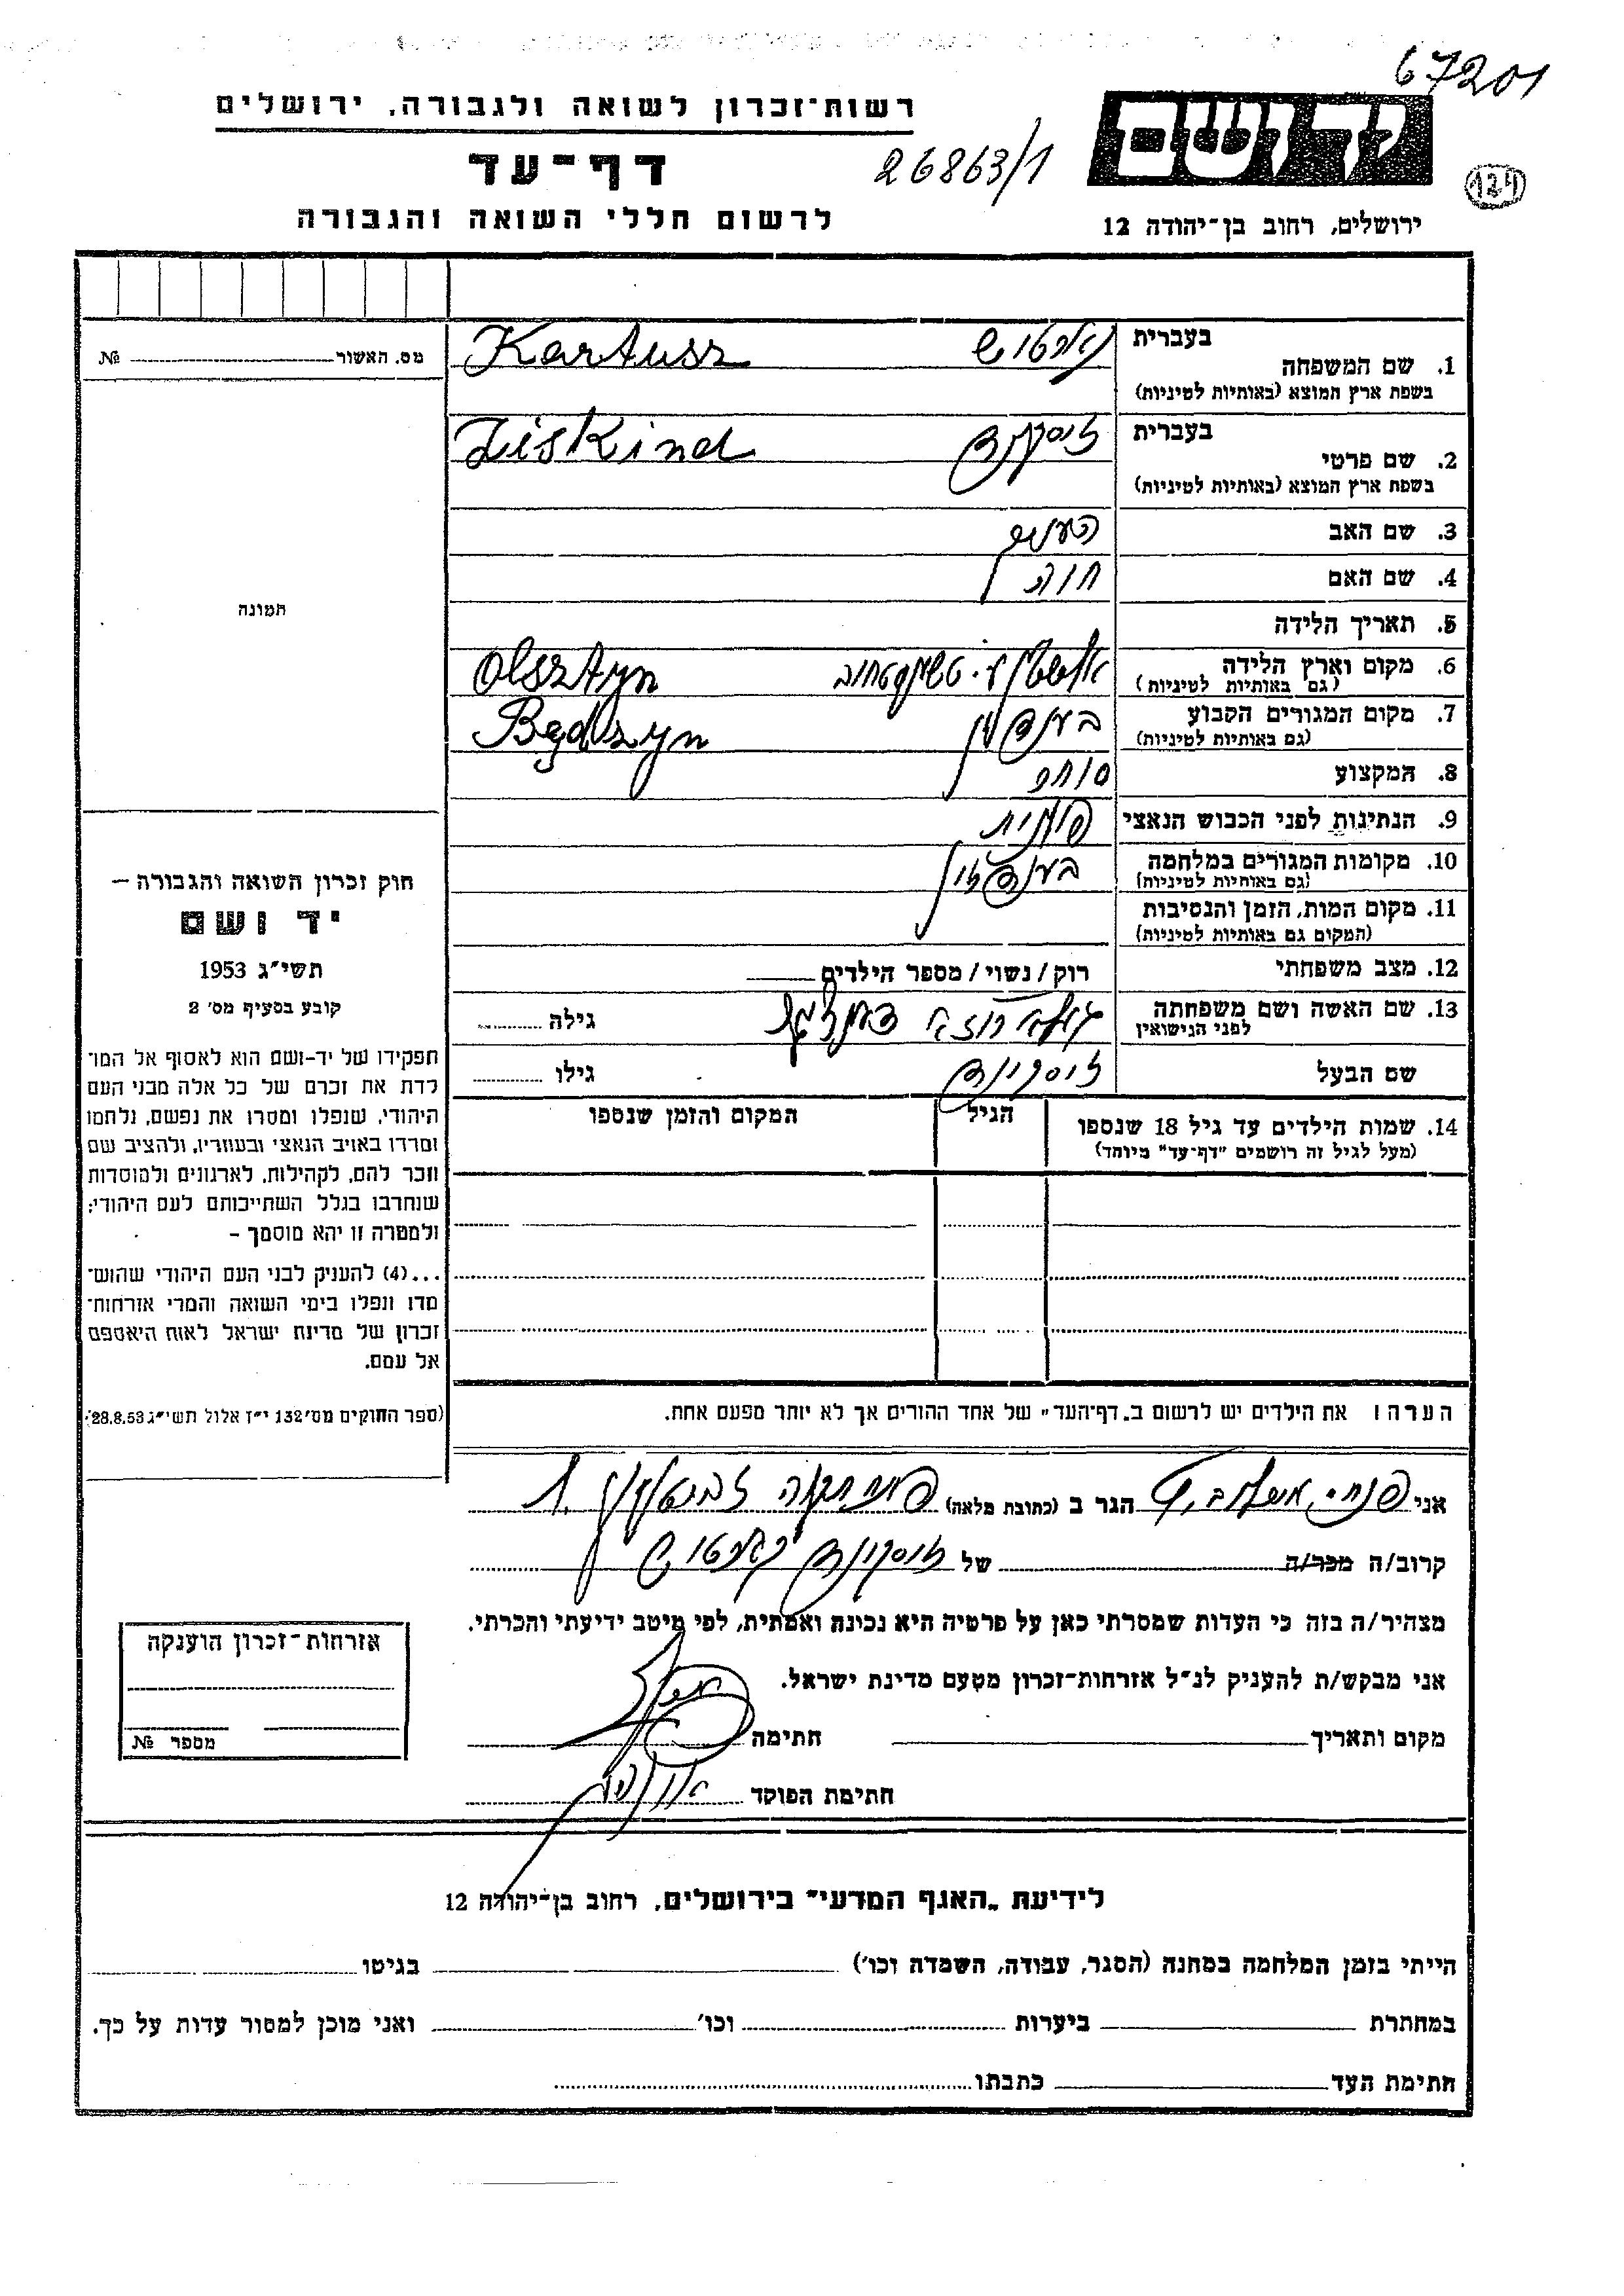 67201
רשות־זכרון לשואה ולגבורה, ירושלים
יד ושם
דף־עד
26863/1
124
לרשום חללי השואה והגבורה
ירושלים, רחוב בן־יהודה 12
מס. האשור № 
בעברית
1. שם המשפחה קארטוש Kartusz
בשפת ארץ המוצא (באותיות לטיניות)
בעברית
2. שם פרטי זיסקינד Ziskind
בשפת ארץ המוצא (באותיות לטיניות)
3. שם האב
4. שם האם חוה
תמונה
5. תאריך הלידה
6. מקום וארץ הלידה Olsztyn
(גם באותיות לטיניות)
7. מקום המגורים הקבוע בענדזין Będszyn
(גם באותיות לטיניות)
8. המקצוע סוחר
9. הנתינות לפני הכבוש הנאצי פולנית
10. מקומות המגורים במלחמה בענדזין
(גם באותיות לטיניות)
11. מקום המות, הזמן והנסיבות
(המקום גם באותיות לטיניות)
12. מצב משפחתי רוק / נשוי / מספר הילדים
13. שם האשה ושם משפחתה גילה
לפני הנישואין
שם הבעל זיסקינד גילו
14. שמות הילדים עד גיל 18 שנספו הגיל המקום והזמן שנספו
(מעל לגיל זה רושמים "דף־עד" מיוחד)
חוק זכרון השואה והגבורה –
יד ושם
תשי"ג 1953
קובע בסעיף מס' 2
תפקידו של יד-ושם הוא לאסוף אל המו־
לדת את זכרם של כל אלה מבני העם
היהודי, שנפלו ומסרו את נפשם, נלחמו
ומרדו באויב הנאצי ובעוזריו, ולהציב שם
וזכר להם, לקהילות, לארגונים ולמוסדות
שנחרבו בגלל השתייכותם לעם היהודי;
ולמטרה זו יהא מוסמך –
...(4) להעניק לבני העם היהודי שהוש־
מדו ונפלו בימי השואה והמרי אזרחות־
זכרון של מדינת ישראל לאות היאספם
אל עמם.
(ספר החוקים מס' 132 י"ז אלול תשי"ג 28.8.53)
הערה ו את הילדים יש לרשום ב„דף־העד" של אחד ההורים אך לא יותר מפעם אחת.
אני הגר ב (כתובת מלאה) פתח תקוה
קרוב/ה מכר/ה של זיסקינד קארטוש
מצהיר/ה בזה כי העדות שמסרתי כאן על פרטיה היא נכונה ואמתית, לפי מיטב ידיעתי והכרתי.
אני מבקש/ת להעניק לנ"ל אזרחות־זכרון מטעם מדינת ישראל.
מקום ותאריך חתימה
חתימת הפוקד
אזרחות־זכרון הוענקה
מספר №
לידיעת „האגף המדעי" בירושלים, רחוב בן־יהודה 12
הייתי בזמן המלחמה במחנה (הסגר, עבודה, השמדה וכו') בגיטו
במחתרת ביערות וכו' ואני מוכן למסור עדות על כך.
חתימת העד כתבתו